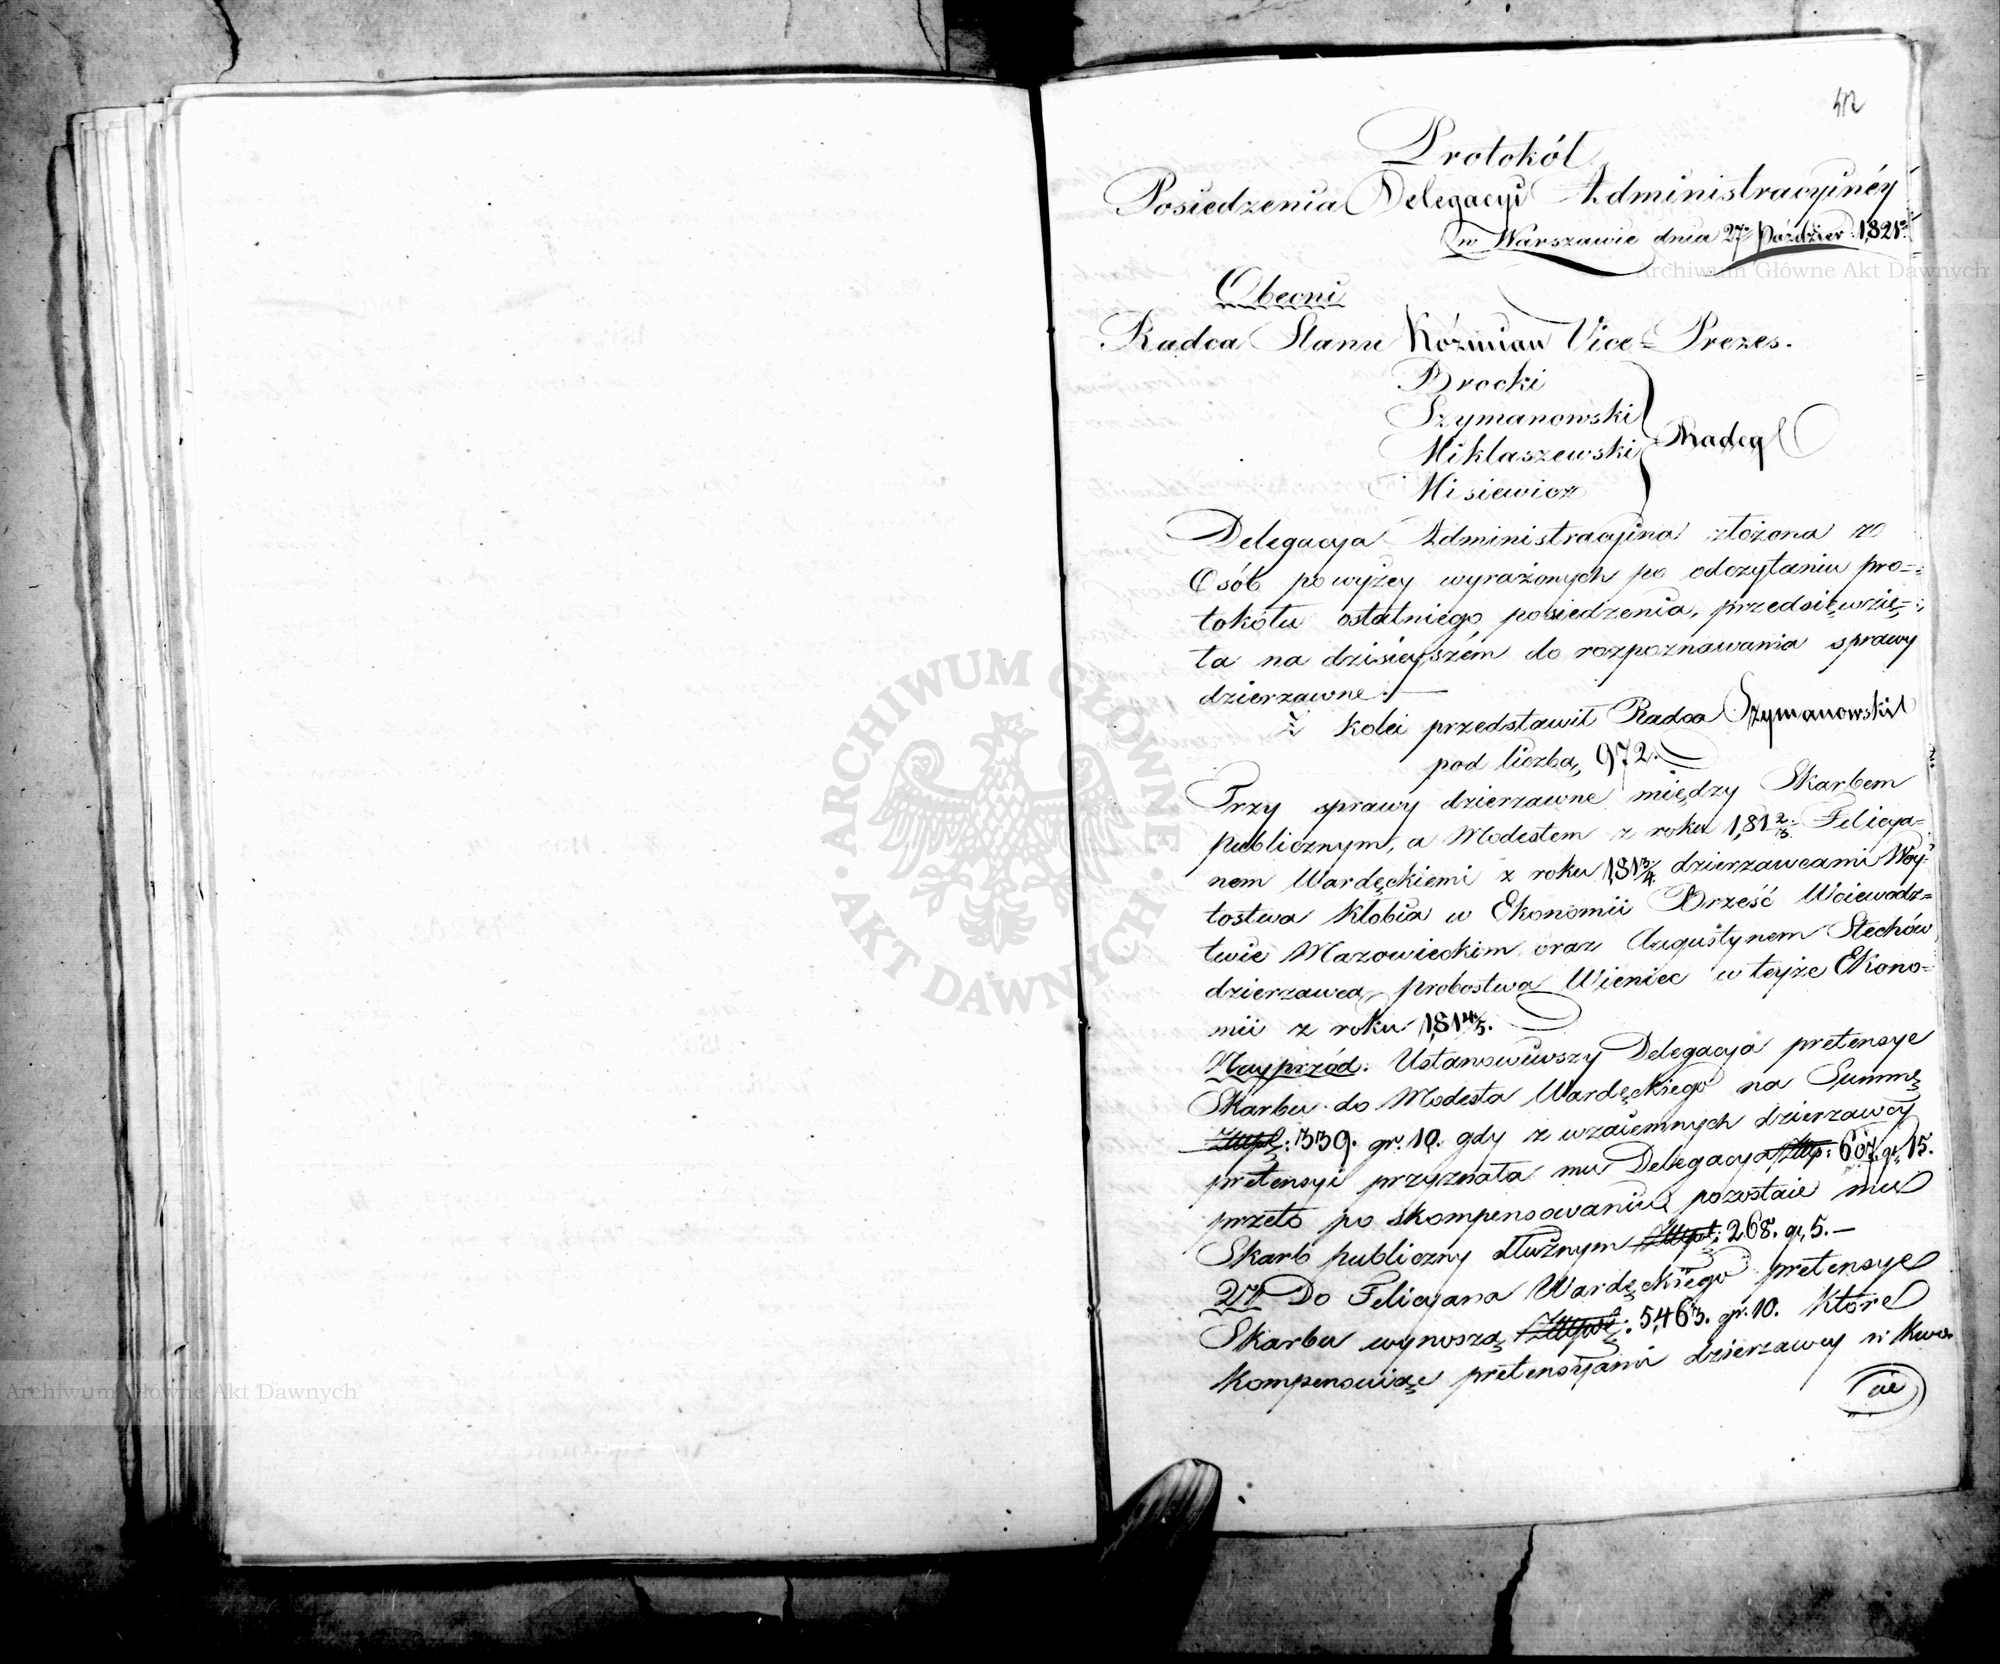 412
Protokół
Posiedzenia Delegacyi Administracyinéy
w Warszawie dnia 27. Paździer: 1821.
Obecni
Radca Stanu Koźmian Vice-Prezes.
Brocki
Szymanowski
Miklaszewski
Misiewicz
Radcy
Delegacya Administracyina złożona ze
Osób powyżey wyrażonych po odczytaniu pro=
tokółu ostatniego posiedzenia, przedsięwzię=
ta na dzisieyszém do rozpoznawania sprawy
dzierzawne. —
Z kolei przedstawił Radca Szymanowski
pod liczbą 972.
Trzy sprawy dzierzawne między Skarbem
publicznym, a Modestem z roku 1812/3. Felicya=
nem Wardęckiemi z roku 1813/4. dzierzawcami Woy=
tostwa Kłobia w Ekonomii Brześć Woiewodz=
twie Mazowieckim oraz Augustynem Stechów
dzierzawcą probostwa Wieniec w teyże Ekono=
mii z roku 1814/5.
Nayprzód: Ustanowiwszy Delegacya pretensye
Skarbu do Modesta Wardęckiego na Summę
Złpol: 339. gr. 10. gdy z wzaiemnych dzierzawcy
pretensyi przyznała mu Delegacya Złp: 607 gr. 15.
przeto po skompensowaniu pozostaie mu
Skarb publiczny dłużnym Złpol: 268. gr. 5. —
2re Do Felicyana Wardęckiego pretensye
Skarbu wynoszą Złpol: 5,463. gr. 10. które
kompensuiąc pretensyami dzierzawcy w kwo=
cie
ARCHIWUM GŁÓWNE AKT DAWNYCH
Archiwum Główne Akt Dawnych
Archiwum Główne Akt Dawnych